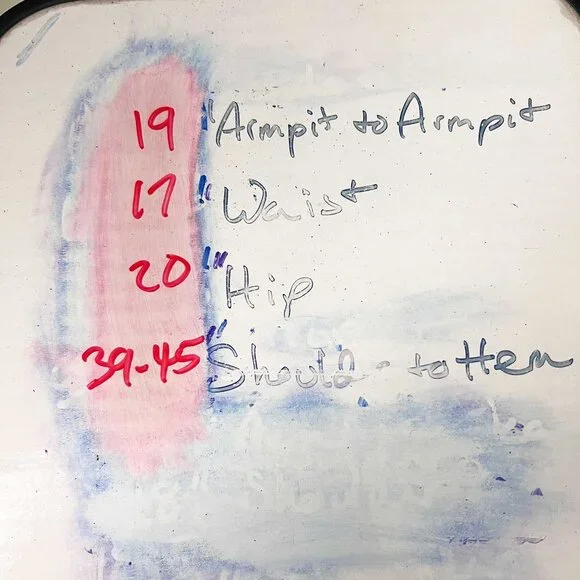 19" Armpit to Armpit
17" Waist
20" Hip
39-45" Should - to Hem